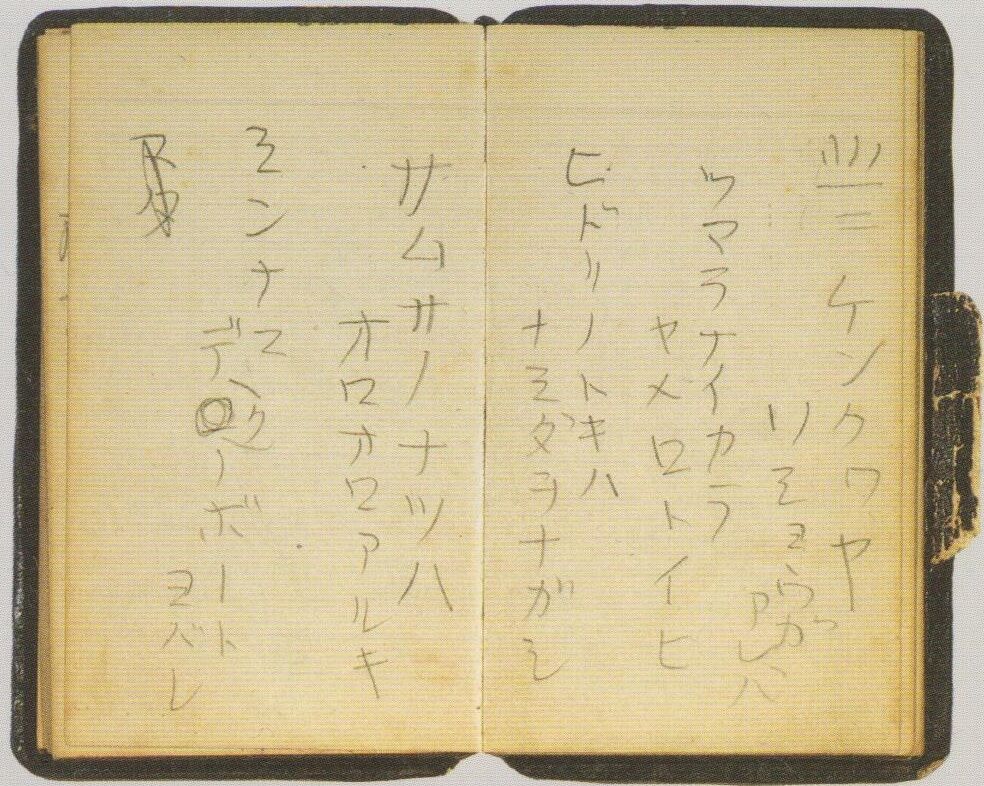 北ニケンクワヤ
ソシヨウガ
アレバ
ツマラナイカラ
ヤメロトイヒ
ヒドリノトキハ
ナミダヲナガシ
サムサノナツハ
オロオロアルキ
ミンナニ
デクノボート
ヨバレ